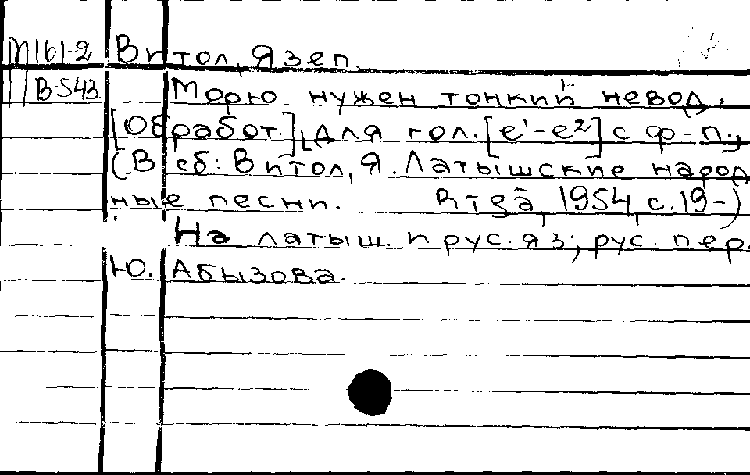 М161-2 Витол, Язеп.
В-543 Морю нужен тонкий невод.
[Обработ.] для гол. [e¹-e²] с ф-п.
(В сб: Витол, Я. Латышские народ
ные песни. Rīgā, 1954, с. 19-)
На латыш. и рус. яз; рус. пер.
Ю. Абызова.